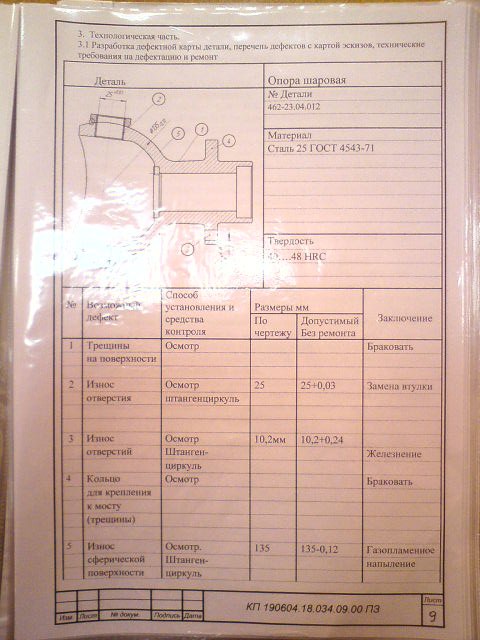 3. Технологическая часть.
3.1 Разработка дефектной карты детали, перечень дефектов с картой эскизов, технические
требования на дефектацию и ремонт
Деталь
Опора шаровая
№ Детали
462-23.04.012
Материал
Сталь 25 ГОСТ 4543-71
Твердость
48 HRC
25
2
5
1
4
3
№
Возможный
дефект
Способ
установления и
средства
контроля
Размеры мм
По
чертежу
Допустимый
Без ремонта
Заключение
1
Трещины
на поверхности
Осмотр
Браковать
2
Износ
отверстия
Осмотр
штангенциркуль
25
25+0,03
Замена втулки
3
Износ
отверстий
Осмотр
Штанген-
циркуль
10,2мм
10,2+0,24
Железнение
4
Кольцо
для крепления
к мосту
(трещины)
Осмотр
Браковать
5
Износ
сферической
поверхности
Осмотр.
Штанген-
циркуль
135
135-0,12
Газопламенное
напыление
Изм.
Лист
№ докум.
Подпись
Дата
КП 190604.18.034.09.00 ПЗ
Лист
9